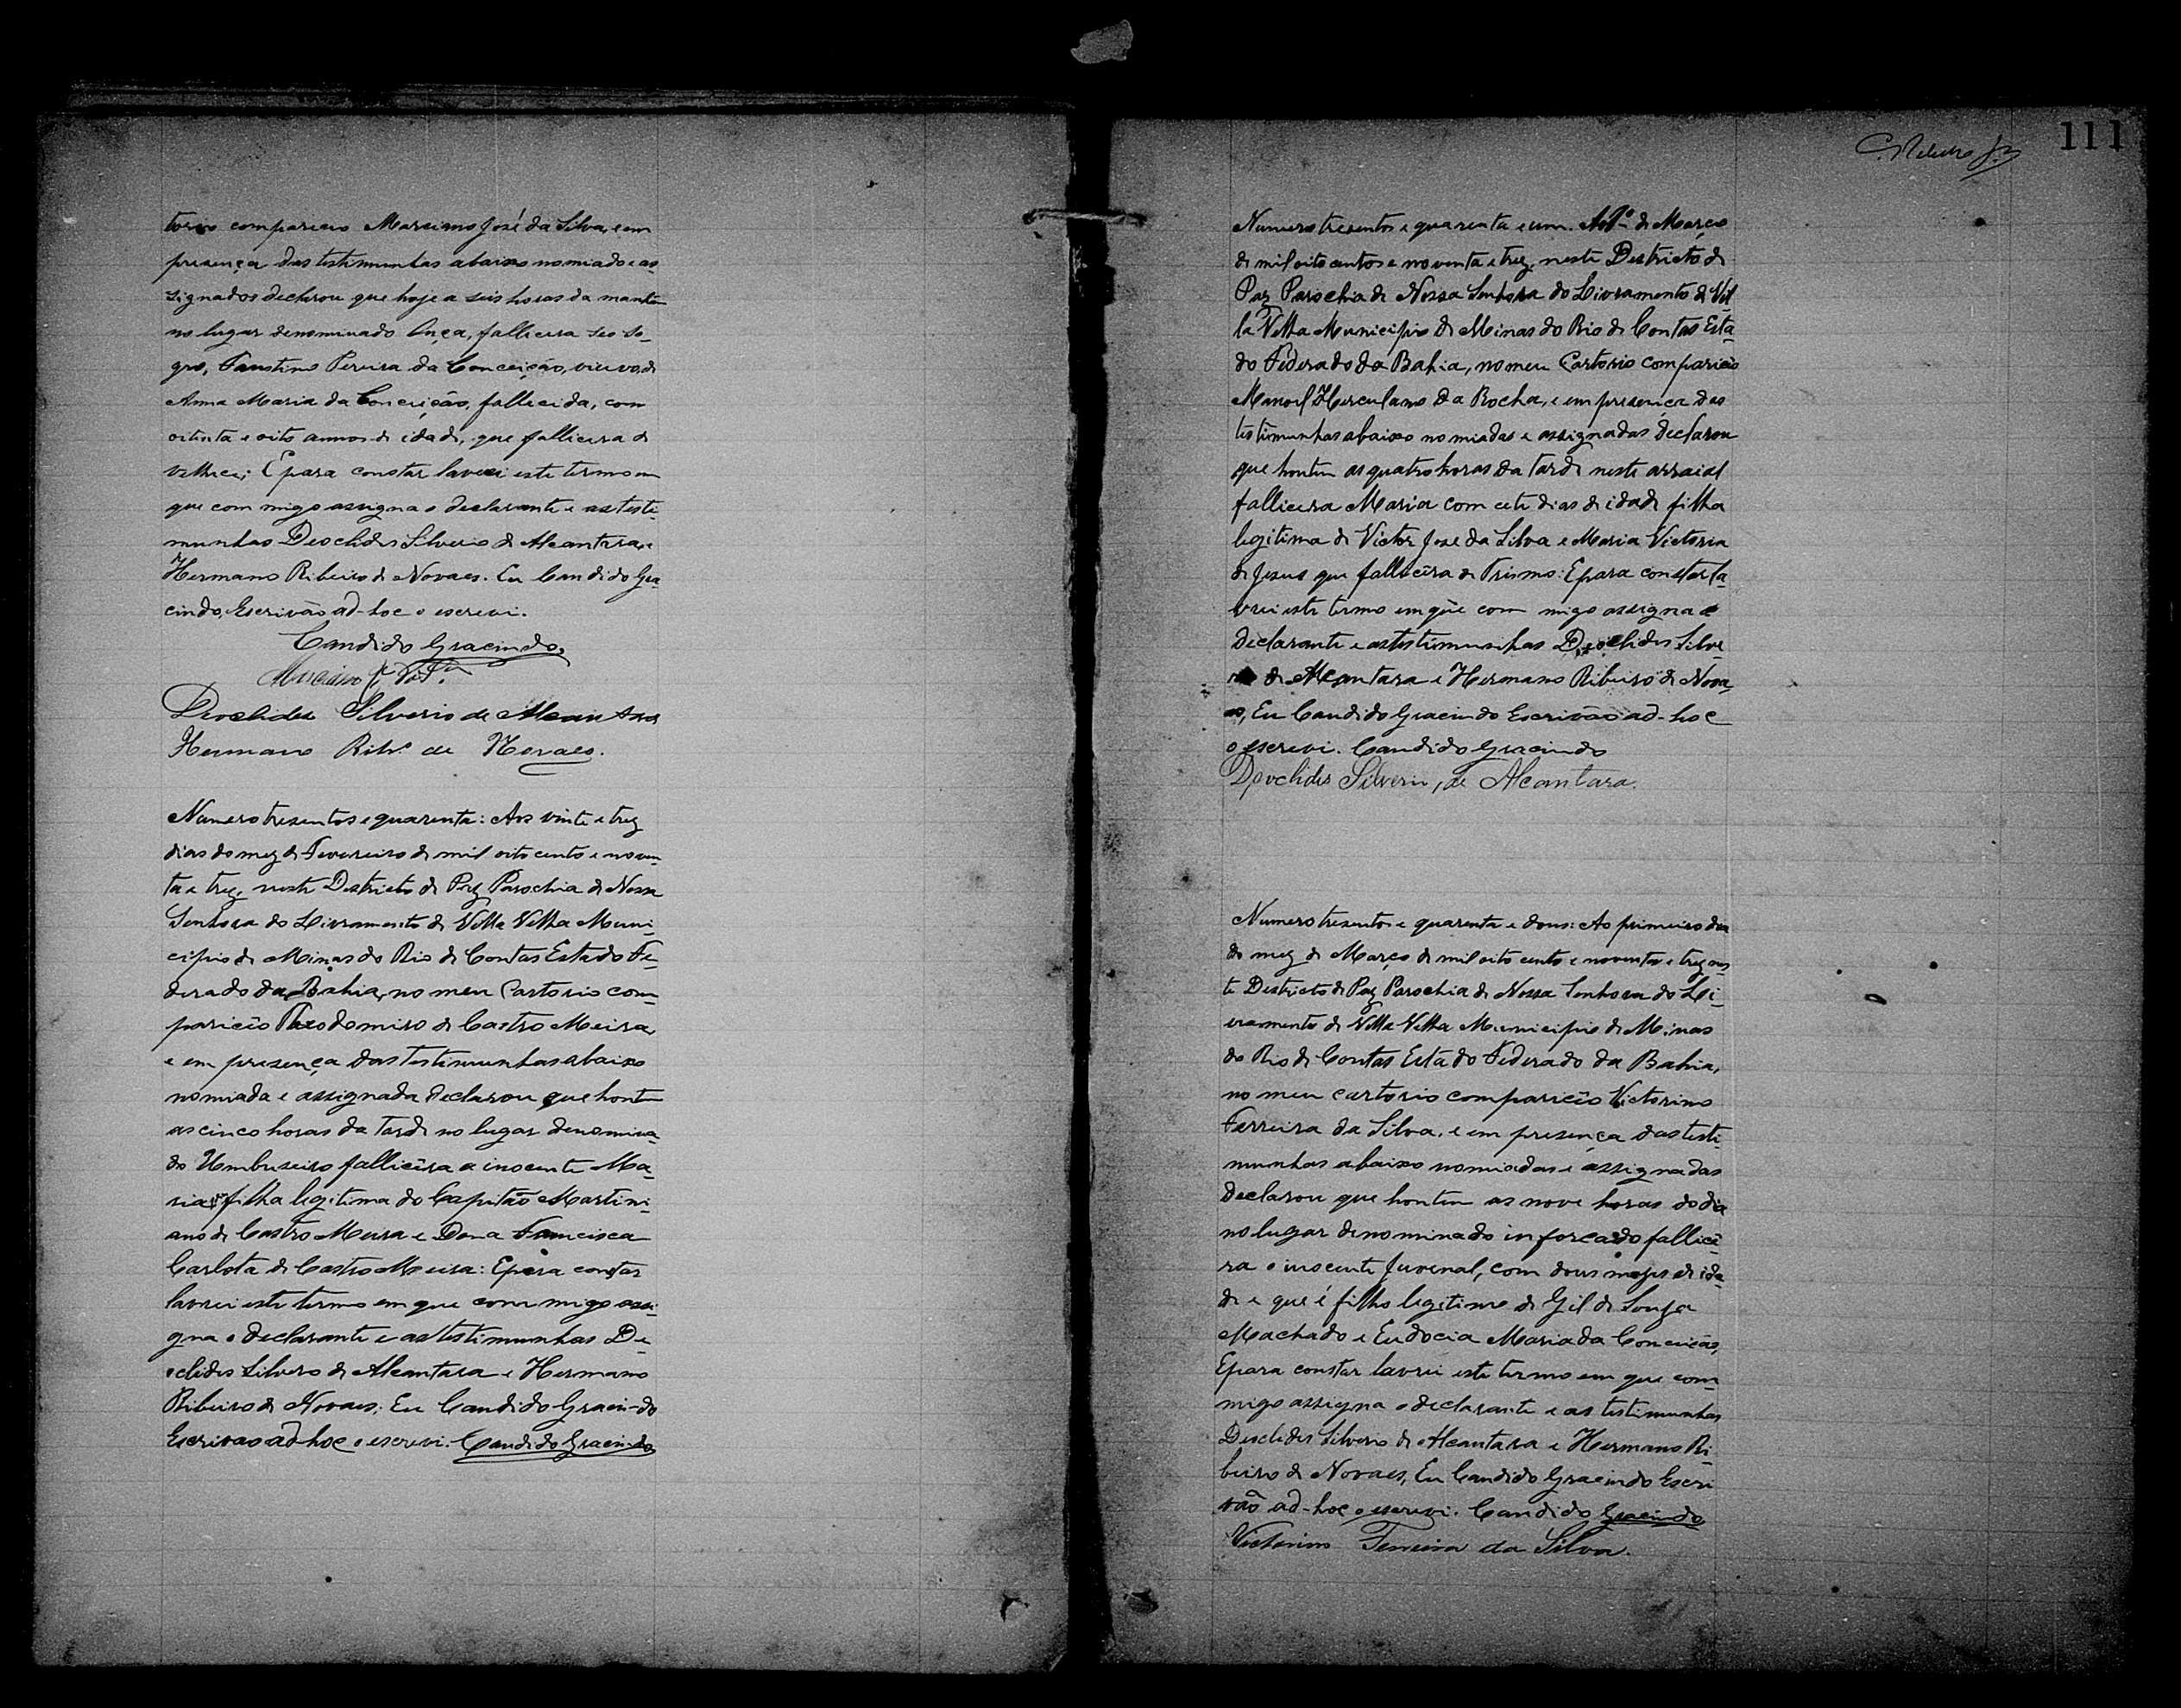 torio compareceo Marciano José da Silva, e em
presença das testimunhas abaixo nomiado e as
signados declarou que hoje a seis horas da manhã
no lugar denominado Onça, fallicera seo so-
gro, Faustino Pereira da Conceição, viuvo, de
Anna Maria da Conceição, fallecida, com
oitenta e oito annos de idade, que fallicera de
velhice; E para constar lavrei este termo em
que com migo assigna o declarante e as teste-
munhas Deoclides Silverio de Alcantara, e
Hermano Ribeiro de Novaes. Eu Candido Gra
cindo, Escrivão ad-hoc o escrevi.
Candido Gracindo,
Deoclides Silverio de Alcantara
Hermano Ribro de Novaes.
Numero tresentos e quarenta: Aos vinte e trez
dias do mez de Fevereiro de mil oito cento e noven
ta e trez, neste Destricto de Paz Parochia de Nossa
Senhora do Livramento de Villa Velha Muni-
cipio de Minas do Rio de Contas Estado Fe-
derado da Bahia, no meu Cartorio com-
pariceo Theodomiro de Castro Meira,
e em presença das testimunhas abaixo
nomiada e assignada declarou que hontem
as cinco horas da tarde no lugar denomina-
do Umbuzeiro fallicêra a inocente Ma-
ria filha legitima do Capitão Martini-
ano de Castro Meira e Dona Francisca
Carlota de Castro Meira: E para constar
lavrei este termo em que com migo assi-
gna o declarante e as testimunhas De-
oclides Silvero de Alcantara e Hermano
Ribeiro de Novaes; Eu Candido Gracin-do
Escrivao ad-hoc o escrevi. Candido Gracindo
111
Numero tresentos e quarenta e um. Ao 1º de Março
de mil oito centos e noventa e trez, neste Destricto de
Paz Parochia de Nossa Senhora do Livramento de Vil
la Velha Municipio de Minas do Rio de Contas Esta-
do Federado da Bahia, no meu Cartorio compariceo
Manoel Herculano da Rocha, e em presença das
testimunhas abaixo nomiadas e assignadas declarou
que hontem as quatro horas da tarde neste arraial
fallicera Maria com cete dias de idade filha
legitima de Victor José da Silva e Maria Victoria
de Jesus que fallicêra de Trismo: E para constar la-
vrei este termo em que com migo assigna o
declarante e as testimunhas Deoclides Silve-
de Alcantara e Hermano Ribeiro de Nova-
es, Eu Candido Gracindo Escrivão ad-hoc
o escrevi. Candido Gracindo
Deoclides Silverio, de Alcantara.
Numero tresentos e quarenta e dous: Ao primeiro dia
do mez de Março de mil oito cento e noventa e trez nes
te Destricto de Paz Parochia de Nossa Senhora do Li-
vramento de Villa Velha Municipio de Minas
do Rio de Contas Estado Federado da Bahia,
no meu cartorio compariceo Victorino
Ferreira da Silva, e em presença das testi
munhas abaixo nomiadas e assignadas
declarou que hontem as nove horas do dia
no lugar denominado inforcado fallicê
ra o inocente Juvenal, com dous mezes de ida
de e que é filho legitimo de Gil de Souza
Machado e Eudocia Maria da Conceição,
E para constar lavrei este termo em que com
migo assigna o declarante e as testimunhas
Deoclides Silverio de Alcantara e Hermano Ri
beiro de Novaes, Eu Candido Gracindo Escri
vão ad-hoc o escrevi. Candido Gracindo
Victorino Ferreira da Silva.